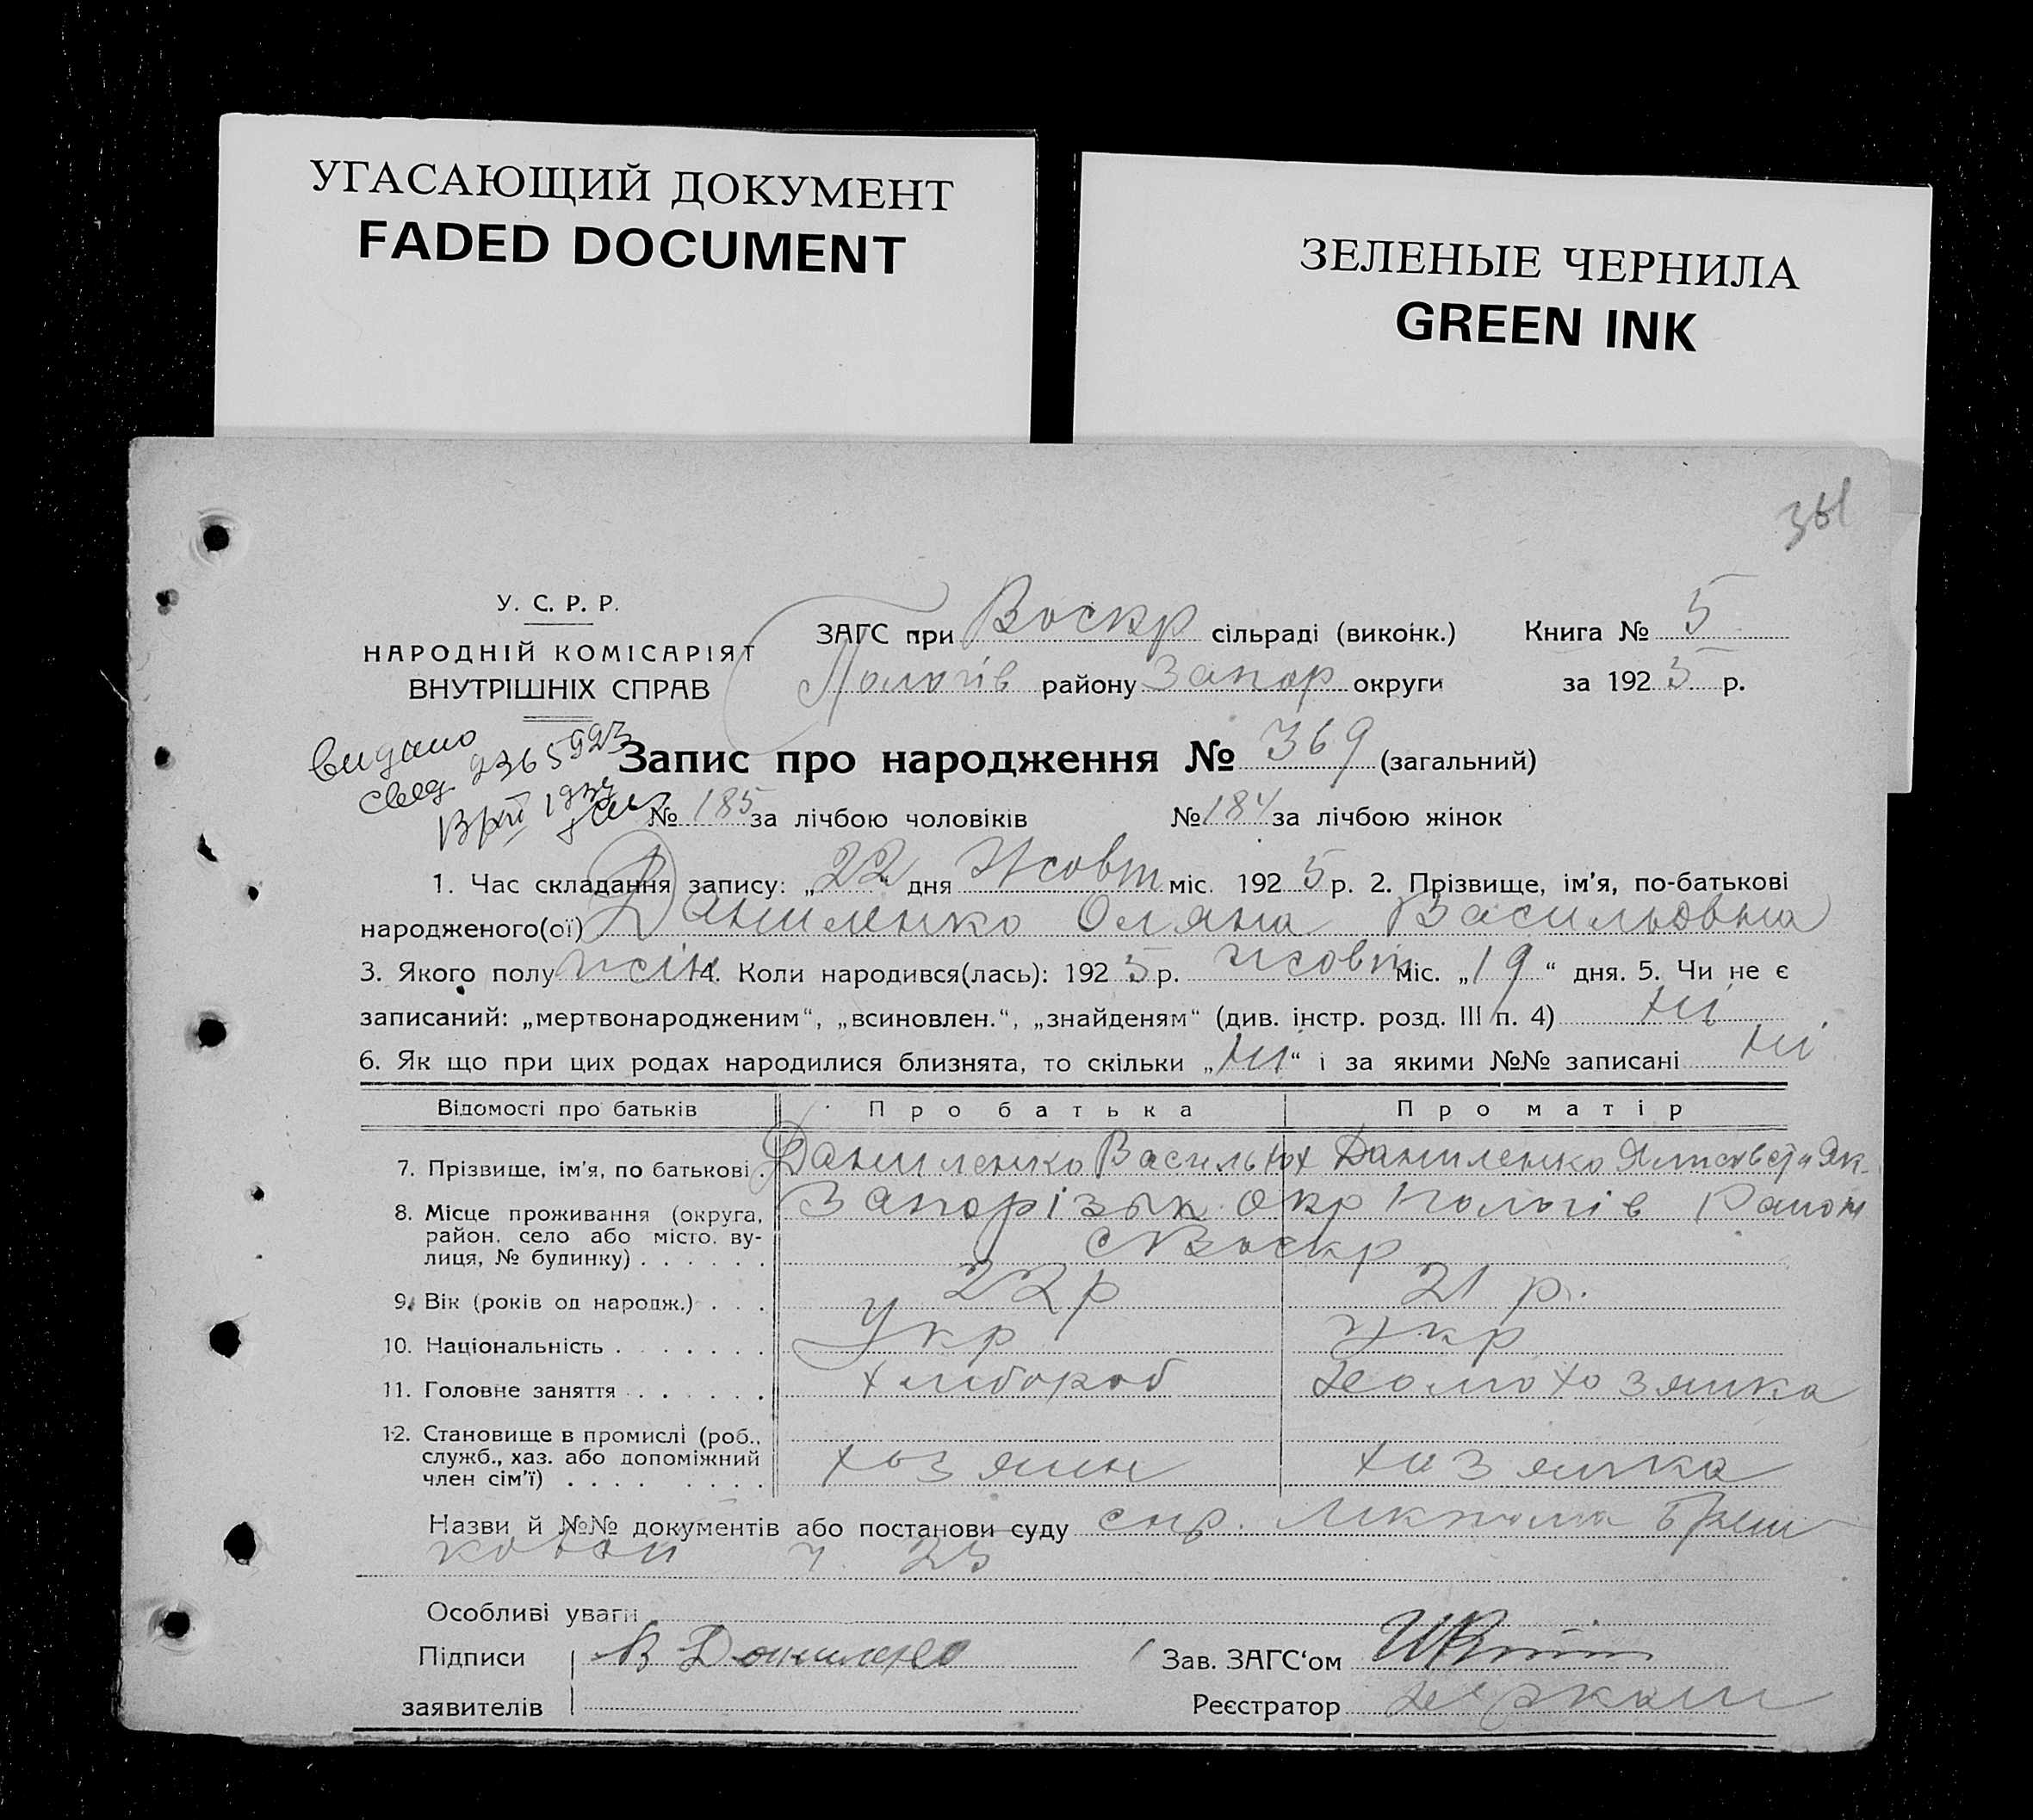 УГАСАЮЩИЙ ДОКУМЕНТ
FADED DOCUMENT
ЗЕЛЕНЫЕ ЧЕРНИЛА
GREEN INK
361
У. С. Р. Р.
НАРОДНІЙ КОМІСАРІЯТ
ВНУТРІШНІХ СПРАВ
ЗАГС при Воскр сільраді (виконк.) Книга № 5
Пологів району Запор округи за 1925 р.
видано
свед. 2365923
Запис про народження № 369 (загальний)
№ 185 за лічбою чоловіків № 184 за лічбою жінок
1. Час складання запису: „22“ дня Жовт міс. 1925 р. 2. Прізвище, ім’я, по-батькові
народженого(ої) Даниленко Оляна Васильовна
3. Якого полу жін 4. Коли народився(лась): 1925 р. жовт міс. „19“ дня. 5. Чи не є
записаний: „мертвонародженим“, „всиновлен.“, „знайденям“ (див. інстр. розд. III п. 4) ні
6. Як що при цих родах народилися близнята, то скільки „ні“ і за якими №№ записані ні
Відомості про батьків Про батька Про матір
7. Прізвище, ім’я, по батькові . Даниленко Василь Даниленко Як.
8. Місце проживання (округа, Запорізьк окр Пологів Район
район, село або місто, ву-
лиця, № будинку) . . . . . . с Воскр
9. Вік (років од народж.) . . . 22 р 21 р.
10. Національність . . . . . . . Укр Укр
11. Головне заняття . . . . . . хлібороб домохозяйка
12. Становище в промислі (роб.,
служб., хаз. або допоміжний
член сім’ї) . . . . . . . . хозяин хозяйка
Назви й №№ документів або постанови суду спр.
ч 23
Особливі уваги
Підписи В Даниленко Зав. ЗАГС‘ом
заявителів Реєстратор